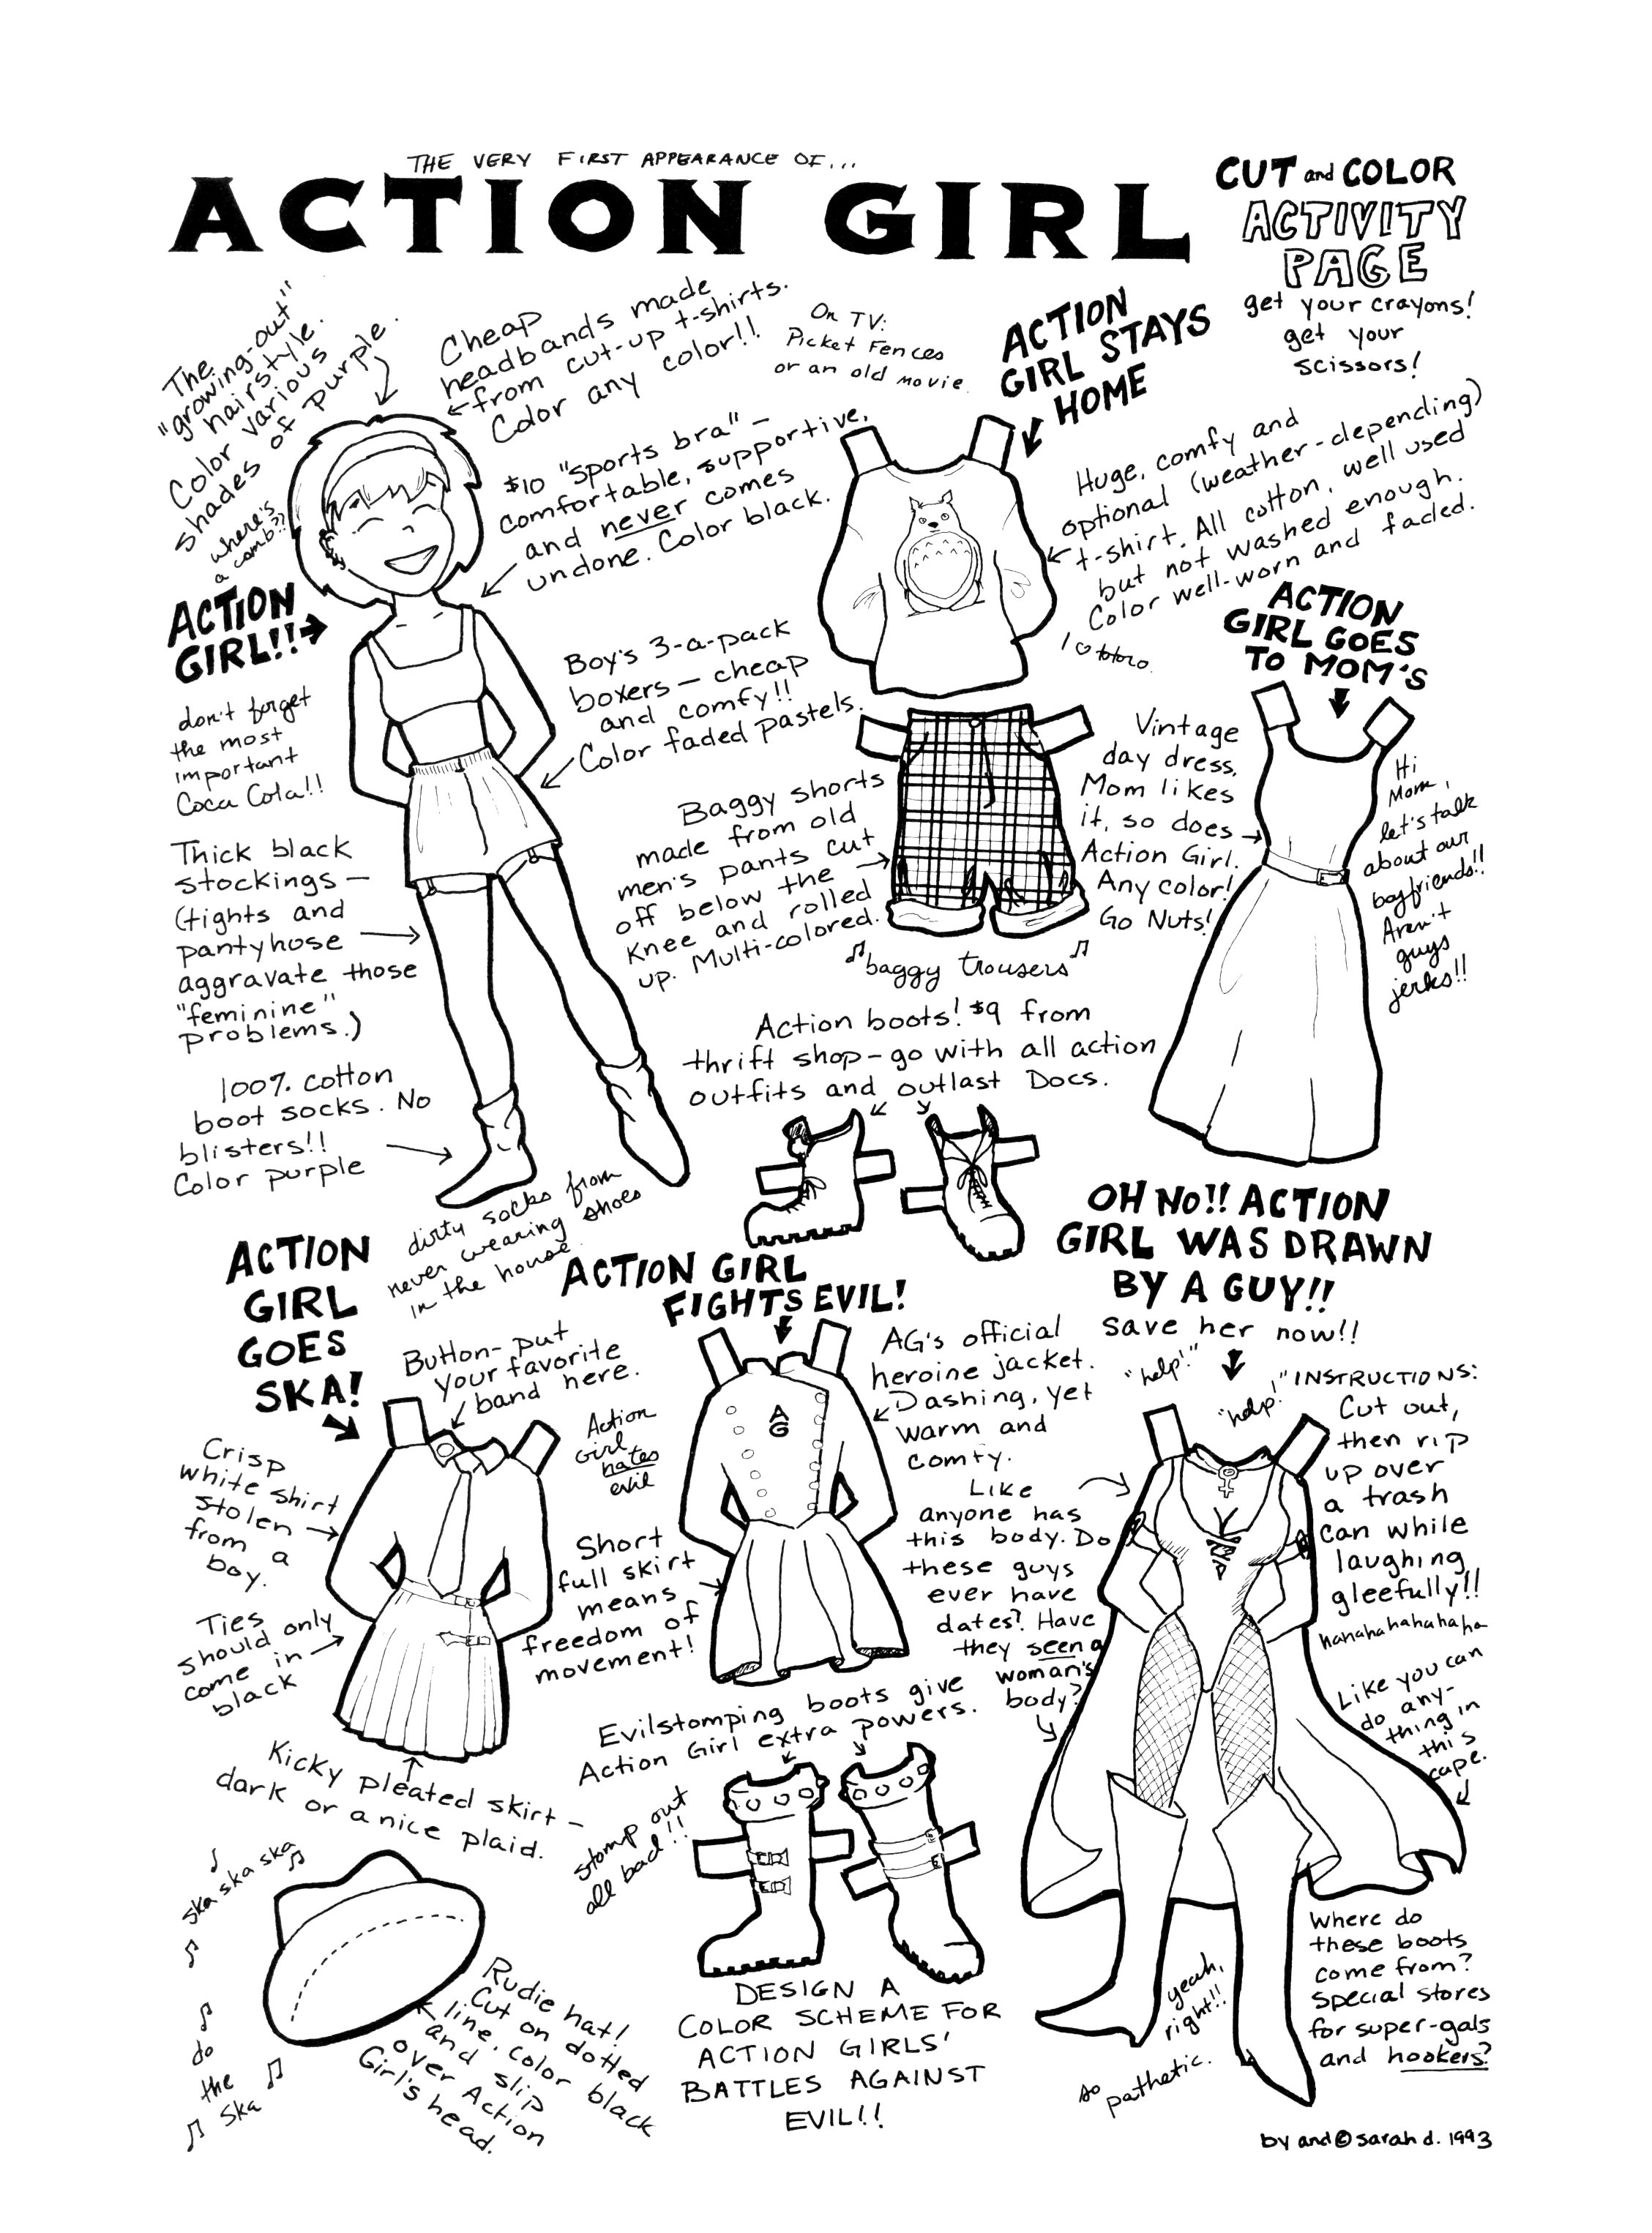 THE VERY FIRST APPEARANCE OF...
ACTION GIRL
CUT and COLOR
ACTIVITY
PAGE
get your crayons!
get your
scissors!
The
"growing-out"
hairstyle.
Color various
shades of purple.
where's
a comb??
Cheap
headbands made
from cut-up t-shirts.
Color any color!!
On TV:
Picket Fences
or an old movie
ACTION
GIRL STAYS
HOME
$10 "sports bra" –
comfortable, supportive,
and never comes
undone. Color black.
Huge, comfy and
optional (weather-depending)
t-shirt. All cotton, well used
but not washed enough.
Color well-worn and faded.
I ♡ totoro
ACTION
GIRL!!
don't forget
the most
important
Coca Cola!!
Boy's 3-a-pack
boxers – cheap
and comfy!!
Color faded pastels.
ACTION
GIRL GOES
TO MOM'S
Vintage
day dress.
Mom likes
it, so does
Action Girl.
Any color!
Go Nuts!
Hi
Mom,
let's talk
about our
boyfriends!!
Aren't
guys
jerks!!
Baggy shorts
made from old
men's pants cut
off below the
knee and rolled
up. Multi-colored.
♫ baggy trousers ♫
Thick black
stockings –
(tights and
pantyhose
aggravate those
"feminine"
problems.)
100% cotton
boot socks. No
blisters!!
Color purple
dirty socks from
never wearing shoes
in the house.
Action boots! $9 from
thrift shop – go with all action
outfits and outlast Docs.
ACTION
GIRL
GOES
SKA!
Button – put
your favorite
band here.
Crisp
white shirt
stolen
from a
boy.
Ties
should only
come in
black
Kicky pleated skirt –
dark or a nice plaid.
ska ska ska
do
the
ska
Rudie hat!
Cut on dotted
line, color black
and slip
over Action
Girl's head.
ACTION GIRL
FIGHTS EVIL!
Action
Girl
hates
evil
AG
AG's official
heroine jacket.
Dashing, yet
warm and
comfy.
Short
full skirt
means
freedom of
movement!
Evilstomping boots give
Action Girl extra powers.
stomp out
all bad!!
DESIGN A
COLOR SCHEME FOR
ACTION GIRLS'
BATTLES AGAINST
EVIL!!
OH NO!! ACTION
GIRL WAS DRAWN
BY A GUY!!
save her now!!
"help!"
"help!"
INSTRUCTIONS:
Cut out,
then rip
up over
a trash
can while
laughing
gleefully!!
hahahahahahaha
Like
anyone has
this body. Do
these guys
ever have
dates? Have
they seen a
woman's
body?
Like you can
do any-
thing in
this
cape.
Where do
these boots
come from?
Special stores
for super-gals
and hookers?
yeah,
right!!
so
pathetic.
by and © sarah d. 1993